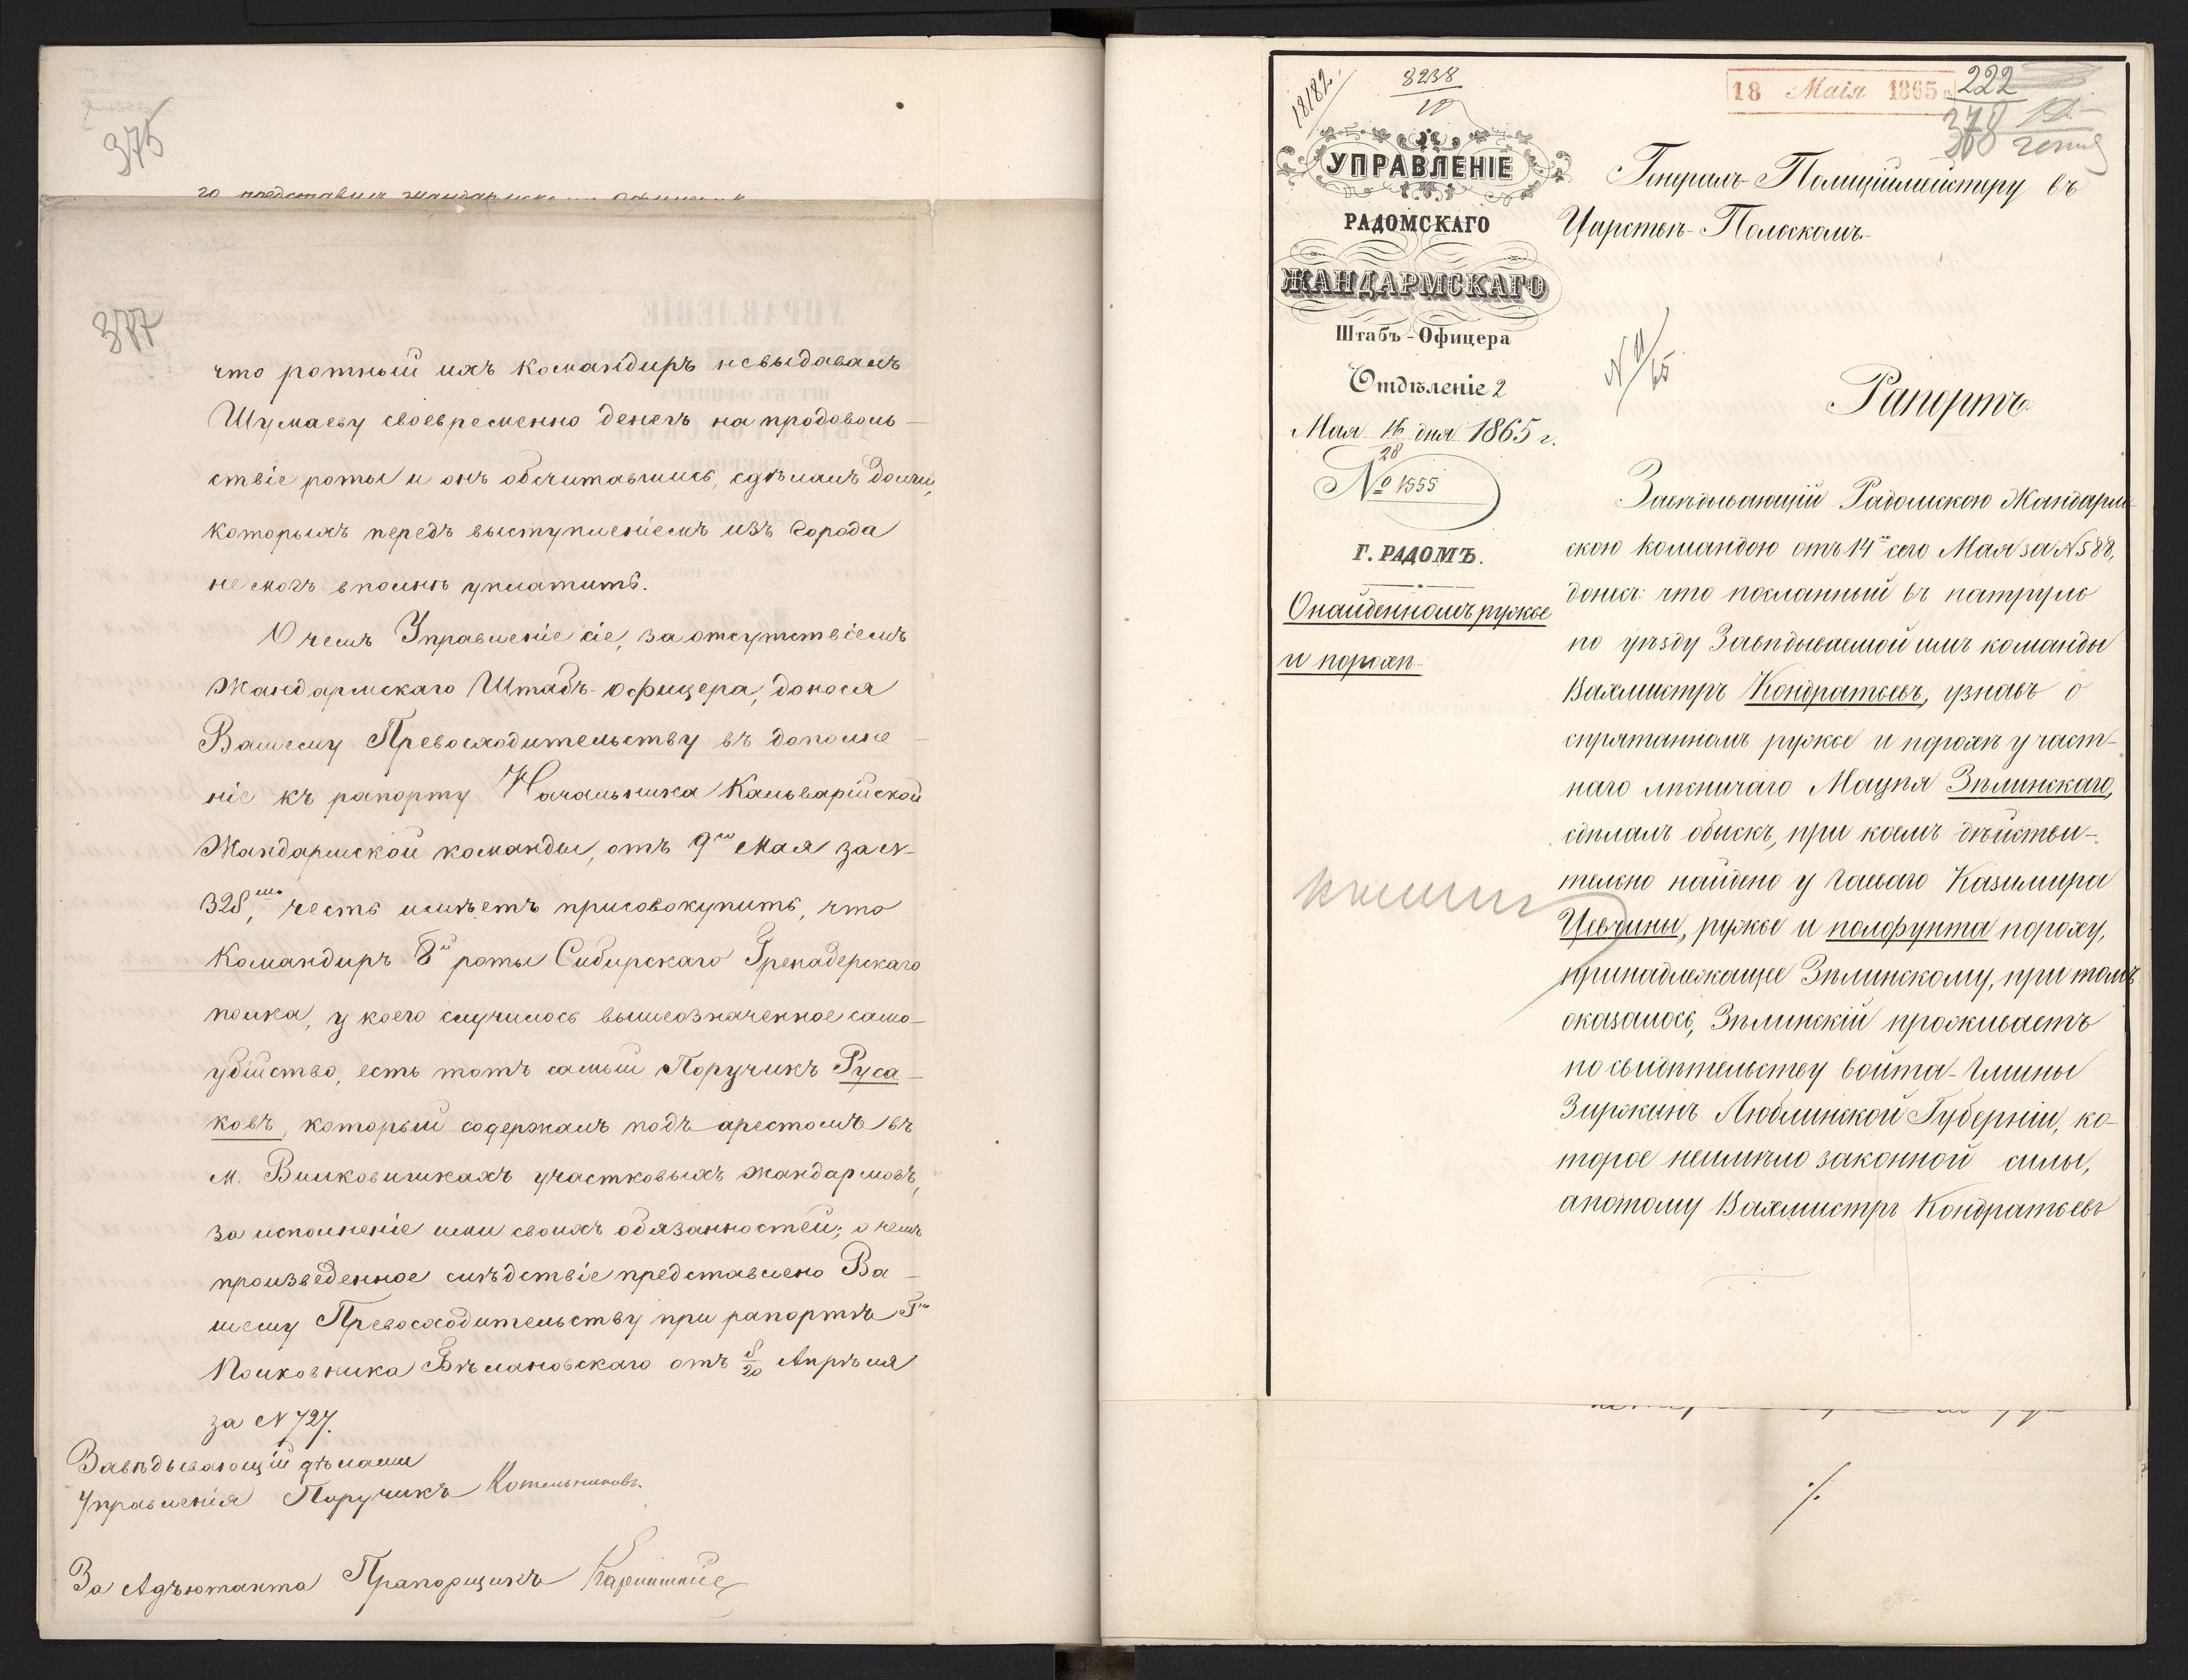 375
377
что ротный ихъ командиръ невыдавалъ
Шумаеву своевременно денегъ на продоволь-
ствіе роты и онъ обсчитавшись, сдѣлалъ долги,
которыхъ передъ выступленіемъ изъ города
не могъ вполнѣ уплатить.
О чемъ Управленіе сіе, за отсутствіемъ
Жандармскаго Штабъ-офицера, донося
Вашему Превосходительству въ дополне-
ніе къ рапорту Начальника Кальварійской
Жандармской команды, отъ 9го Мая за N-
328, честь имѣетъ присовокупить, что
командиръ 8й роты Сибирскаго Гренадерскаго
полка, у коего случилось вышеозначенное само-
убійство, есть тотъ самый Поручикъ Руса-
ковъ, который содержалъ подъ арестомъ въ
м. Вилковишкахъ участковыхъ жандармовъ,
за исполненіе ими своихъ обязанностей; о чемъ
произведенное слѣдствіе представлено Ва-
шему Превосходительству при рапортѣ Гна
Полковника Бѣлановскаго отъ 8/20 Апрѣля
за N 727.
Завѣдывающій дѣлами
Управленія Поручикъ Котельниковъ.
За Адъютанта Прапорщикъ
18182.
8238
18 Маія 1865
222
УПРАВЛЕНІЕ
РАДОМСКАГО
ЖАНДАРМСКАГО
Штабъ-Офицера
Отдѣленіе 2
Мая 16/28 дня 1865 г.
№ 1555
Г. РАДОМЪ.
О найденномъ ружье
и порохѣ
Генералъ-Полиціймейстеру въ
Царствѣ-Польскомъ.
Рапортъ
Завѣдывающій Радомскою Жандарм-
скою командою отъ 14го сего Мая за N 588,
донесъ: что посланный въ патруль
по уѣзду Завѣдываемой имъ команды
Вахмистръ Кондратьевъ, узнавъ о
спрятанномъ ружье и порохѣ у част-
наго лѣсничаго Мацѣя Зѣлинскаго,
сдѣлалъ обыскъ, при коемъ дѣйстви-
тельно найдено у гаеваго Казимира
Цевчины, ружье и полфунта пороху,
принадлежащее Зѣлинскому, при томъ
оказалось, Зѣлинскій проживаетъ
по свидѣтельству войта-Гмины
Зиржинъ Люблинской Губерніи, ко-
торое неимѣло законной силы,
апотому Вахмистръ Кондратьевъ